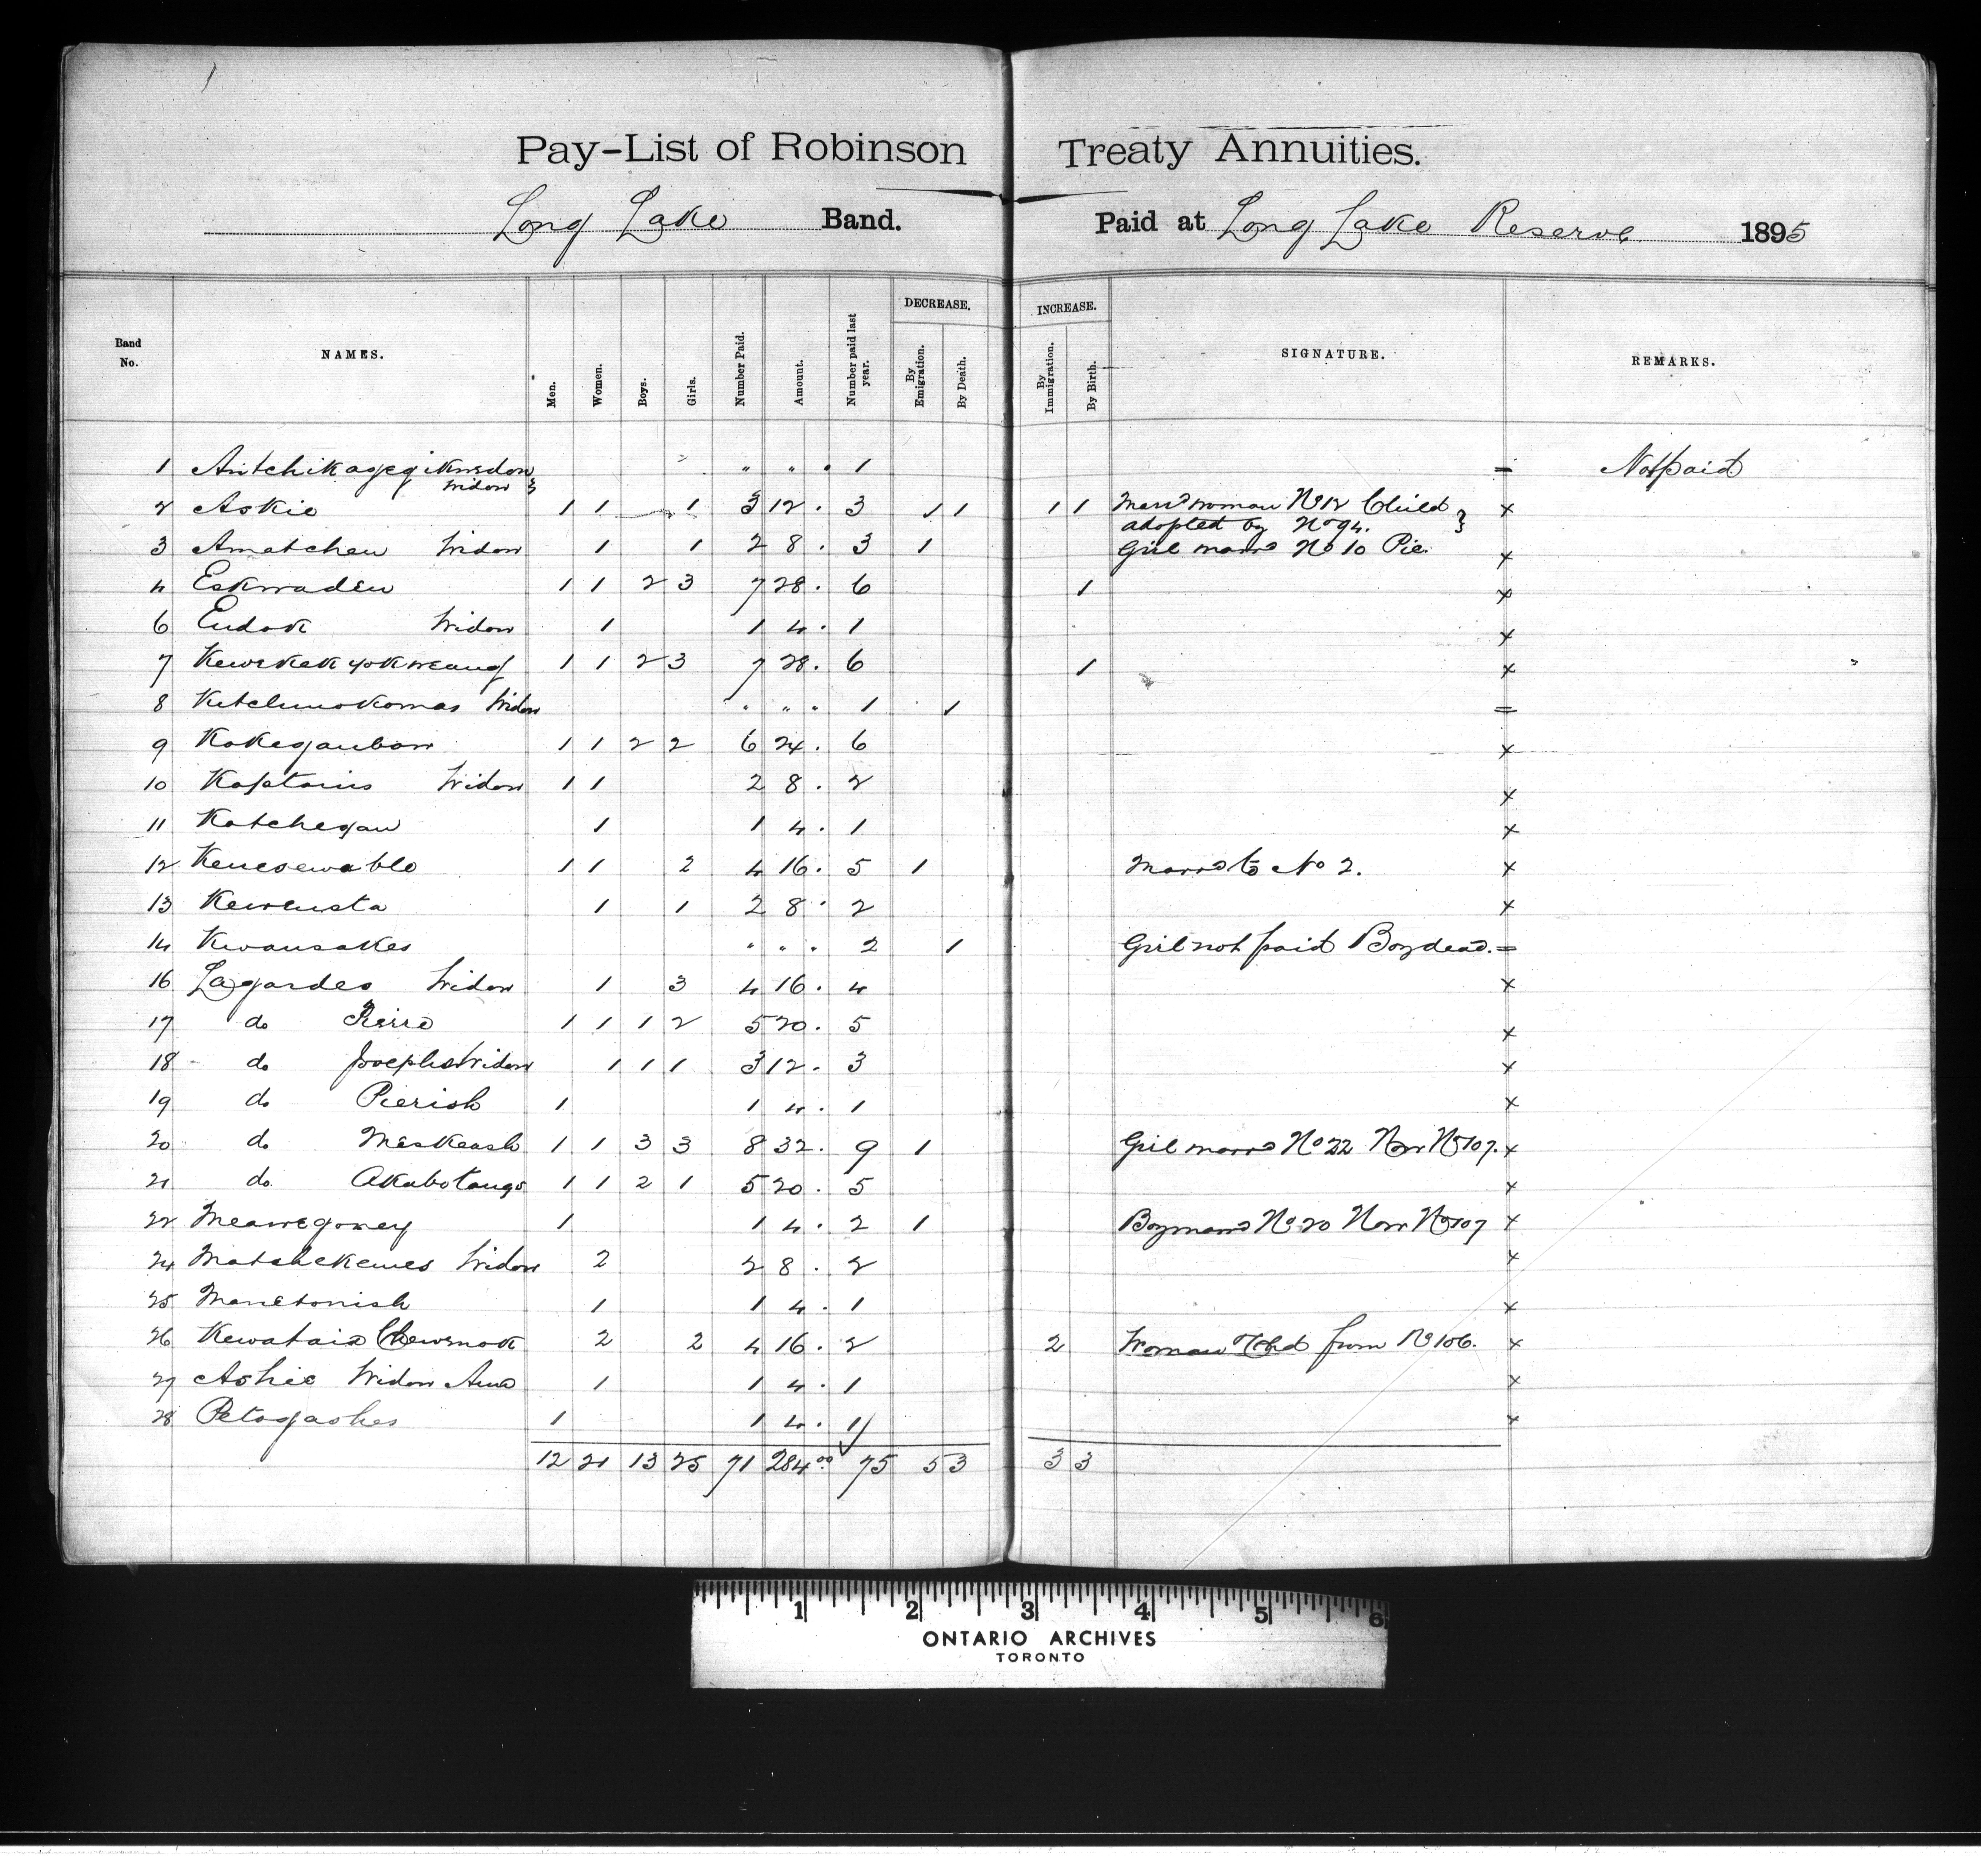 Pay-List of Robinson Treaty Annuities.
Long Lake Band. Paid at Long Lake Reserve 1895
Band No. NAMES. Men. Women. Boys. Girls. Number Paid. Amount. Number paid last year. DECREASE. By Emigration. By Death. INCREASE. By Immigration. By Birth. SIGNATURE. REMARKS.
1 " " . 1 = Not paid
Widow }
2 Askie 1 1 1 3 12 . 3 1 1 1 1 Marrd woman No 12 Child } x
adopted by No 94.
3 Amatchew Widow 1 1 2 8 . 3 1 Girl marrd No 10 Pic. x
4 Eskwadew 1 1 2 3 7 28 . 6 1 x
6 Widow 1 1 4 . 1 x
7 1 1 2 3 7 28 . 6 1 x
8 Ketchimokomas Widow " " " 1 1 =
9 Kokegaubow 1 1 2 2 6 24 . 6 x
10 Kaptains Widow 1 1 2 8 . 2 x
11 Katchegaw 1 1 4 . 1 x
12 1 1 2 4 16 . 5 1 Marrd to No 2. x
13 Kewensta 1 1 2 8 . 2 x
14 Kwansakes " " " 2 1 Girl not paid Boy dead. =
16 Lagardes Widow 1 3 4 16 . 4 x
17 do Pierre 1 1 1 2 5 20 . 5 x
18 do Josephs Widow 1 1 1 3 12 . 3 x
19 do Pierish 1 1 4 . 1 x
20 do Meskeash 1 1 3 3 8 32 . 9 1 Girl marrd No 22 Now No 107. x
21 do 1 1 2 1 5 20 . 5 x
22 1 1 4 . 2 1 Boy marrd No 20 Now No 107 x
24 Matshekewes Widow 2 2 8 . 2 x
25 Manetonish 1 1 4 . 1 x
26 Kewatais 2 2 4 16 . 2 2 Woman & Chd from No 106. x
27 Ashie Widow 1 1 4 . 1 x
28 Petogashes 1 1 4 . 1 x
12 21 13 25 71 284.00 75 5 3 3 3
1 2 3 4 5 6
ONTARIO ARCHIVES
TORONTO